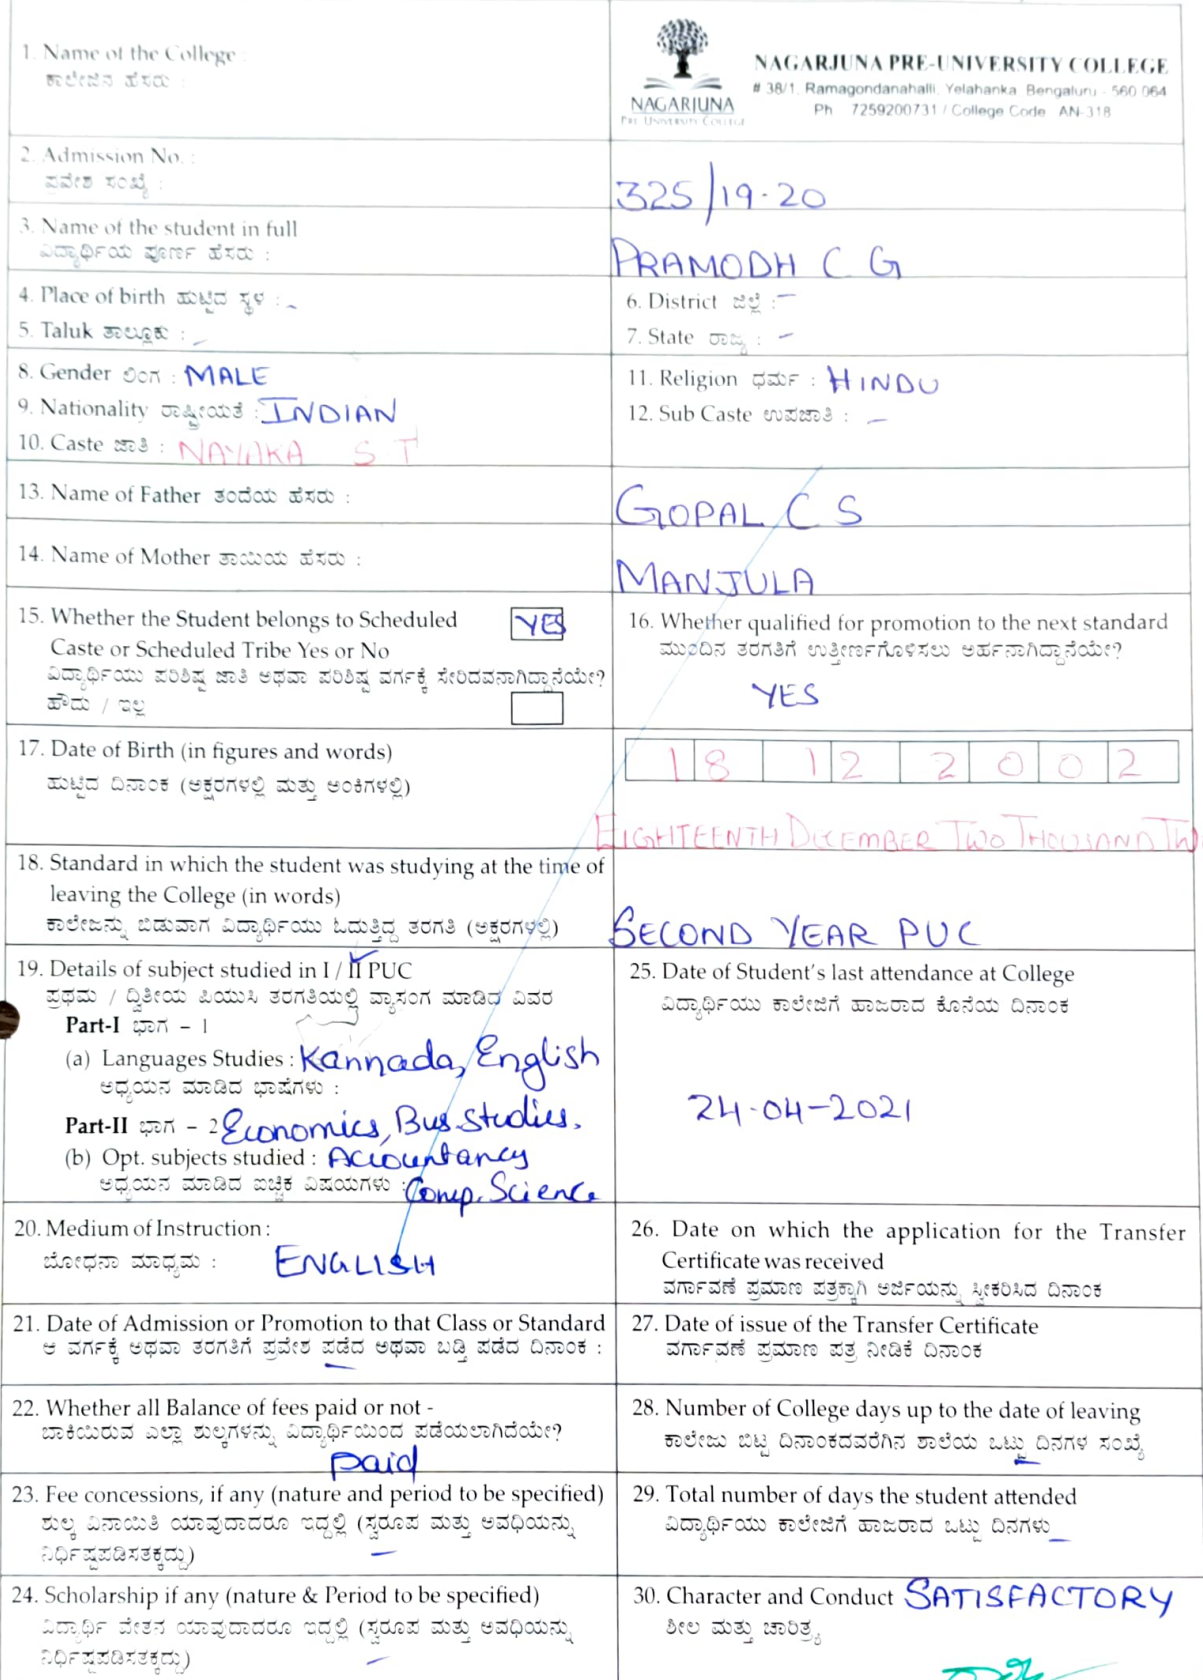 1. Name of the College :
ಕಾಲೇಜಿನ ಹೆಸರು :
NAGARJUNA
PRE-UNIVERSITY COLLEGE
NAGARJUNA PRE-UNIVERSITY COLLEGE
# 38/1, Ramagondanahalli, Yelahanka, Bengaluru - 560 064
Ph 7259200731 / College Code AN-318
2. Admission No. :
ಪ್ರವೇಶ ಸಂಖ್ಯೆ :
325/19-20
3. Name of the student in full
ವಿದ್ಯಾರ್ಥಿಯ ಪೂರ್ಣ ಹೆಸರು :
PRAMODH C G
4. Place of birth ಹುಟ್ಟಿದ ಸ್ಥಳ : -
5. Taluk ತಾಲ್ಲೂಕು : -
6. District ಜಿಲ್ಲೆ : -
7. State ರಾಜ್ಯ : -
8. Gender ಲಿಂಗ : MALE
9. Nationality ರಾಷ್ಟ್ರೀಯತೆ : INDIAN
10. Caste ಜಾತಿ : NAYAKA S T
11. Religion ಧರ್ಮ : HINDU
12. Sub Caste ಉಪಜಾತಿ : -
13. Name of Father ತಂದೆಯ ಹೆಸರು :
GOPAL C S
14. Name of Mother ತಾಯಿಯ ಹೆಸರು :
MANJULA
15. Whether the Student belongs to Scheduled
Caste or Scheduled Tribe Yes or No
YES
ವಿದ್ಯಾರ್ಥಿಯು ಪರಿಶಿಷ್ಟ ಜಾತಿ ಅಥವಾ ಪರಿಶಿಷ್ಟ ವರ್ಗಕ್ಕೆ ಸೇರಿದವನಾಗಿದ್ದಾನೆಯೇ?
ಹೌದು / ಇಲ್ಲ
16. Whether qualified for promotion to the next standard
ಮುಂದಿನ ತರಗತಿಗೆ ಉತ್ತೀರ್ಣಗೊಳಿಸಲು ಅರ್ಹನಾಗಿದ್ದಾನೆಯೇ?
YES
17. Date of Birth (in figures and words)
ಹುಟ್ಟಿದ ದಿನಾಂಕ (ಅಕ್ಷರಗಳಲ್ಲಿ ಮತ್ತು ಅಂಕಿಗಳಲ್ಲಿ)
18 12 2002
EIGHTEENTH DECEMBER TWO THOUSAND TW
18. Standard in which the student was studying at the time of
leaving the College (in words)
ಕಾಲೇಜನ್ನು ಬಿಡುವಾಗ ವಿದ್ಯಾರ್ಥಿಯು ಓದುತ್ತಿದ್ದ ತರಗತಿ (ಅಕ್ಷರಗಳಲ್ಲಿ)
SECOND YEAR PUC
19. Details of subject studied in I / II PUC
ಪ್ರಥಮ / ದ್ವಿತೀಯ ಪಿಯುಸಿ ತರಗತಿಯಲ್ಲಿ ವ್ಯಾಸಂಗ ಮಾಡಿದ ವಿವರ
Part-I ಭಾಗ - 1
(a) Languages Studies : Kannada, English
ಅಧ್ಯಯನ ಮಾಡಿದ ಭಾಷೆಗಳು :
Part-II ಭಾಗ - 2 Economics, Bus.Studies.
(b) Opt. subjects studied : Accountancy
ಅಧ್ಯಯನ ಮಾಡಿದ ಐಚ್ಛಿಕ ವಿಷಯಗಳು : Comp. Science
25. Date of Student's last attendance at College
ವಿದ್ಯಾರ್ಥಿಯು ಕಾಲೇಜಿಗೆ ಹಾಜರಾದ ಕೊನೆಯ ದಿನಾಂಕ
24-04-2021
20. Medium of Instruction :
ಬೋಧನಾ ಮಾಧ್ಯಮ :
ENGLISH
26. Date on which the application for the Transfer
Certificate was received
ವರ್ಗಾವಣೆ ಪ್ರಮಾಣ ಪತ್ರಕ್ಕಾಗಿ ಅರ್ಜಿಯನ್ನು ಸ್ವೀಕರಿಸಿದ ದಿನಾಂಕ
21. Date of Admission or Promotion to that Class or Standard
ಆ ವರ್ಗಕ್ಕೆ ಅಥವಾ ತರಗತಿಗೆ ಪ್ರವೇಶ ಪಡೆದ ಅಥವಾ ಬಡ್ತಿ ಪಡೆದ ದಿನಾಂಕ :
-
27. Date of issue of the Transfer Certificate
ವರ್ಗಾವಣೆ ಪ್ರಮಾಣ ಪತ್ರ ನೀಡಿಕೆ ದಿನಾಂಕ
22. Whether all Balance of fees paid or not -
ಬಾಕಿಯಿರುವ ಎಲ್ಲಾ ಶುಲ್ಕಗಳನ್ನು ವಿದ್ಯಾರ್ಥಿಯಿಂದ ಪಡೆಯಲಾಗಿದೆಯೇ?
paid
28. Number of College days up to the date of leaving
ಕಾಲೇಜು ಬಿಟ್ಟ ದಿನಾಂಕದವರೆಗಿನ ಶಾಲೆಯ ಒಟ್ಟು ದಿನಗಳ ಸಂಖ್ಯೆ
-
23. Fee concessions, if any (nature and period to be specified)
ಶುಲ್ಕ ವಿನಾಯಿತಿ ಯಾವುದಾದರೂ ಇದ್ದಲ್ಲಿ (ಸ್ವರೂಪ ಮತ್ತು ಅವಧಿಯನ್ನು
ನಿರ್ಧಿಷ್ಟಪಡಿಸತಕ್ಕದ್ದು) -
29. Total number of days the student attended
ವಿದ್ಯಾರ್ಥಿಯು ಕಾಲೇಜಿಗೆ ಹಾಜರಾದ ಒಟ್ಟು ದಿನಗಳು -
24. Scholarship if any (nature & Period to be specified)
ವಿದ್ಯಾರ್ಥಿ ವೇತನ ಯಾವುದಾದರೂ ಇದ್ದಲ್ಲಿ (ಸ್ವರೂಪ ಮತ್ತು ಅವಧಿಯನ್ನು
ನಿರ್ಧಿಷ್ಟಪಡಿಸತಕ್ಕದ್ದು) -
30. Character and Conduct SATISFACTORY
ಶೀಲ ಮತ್ತು ಚಾರಿತ್ರ್ಯ